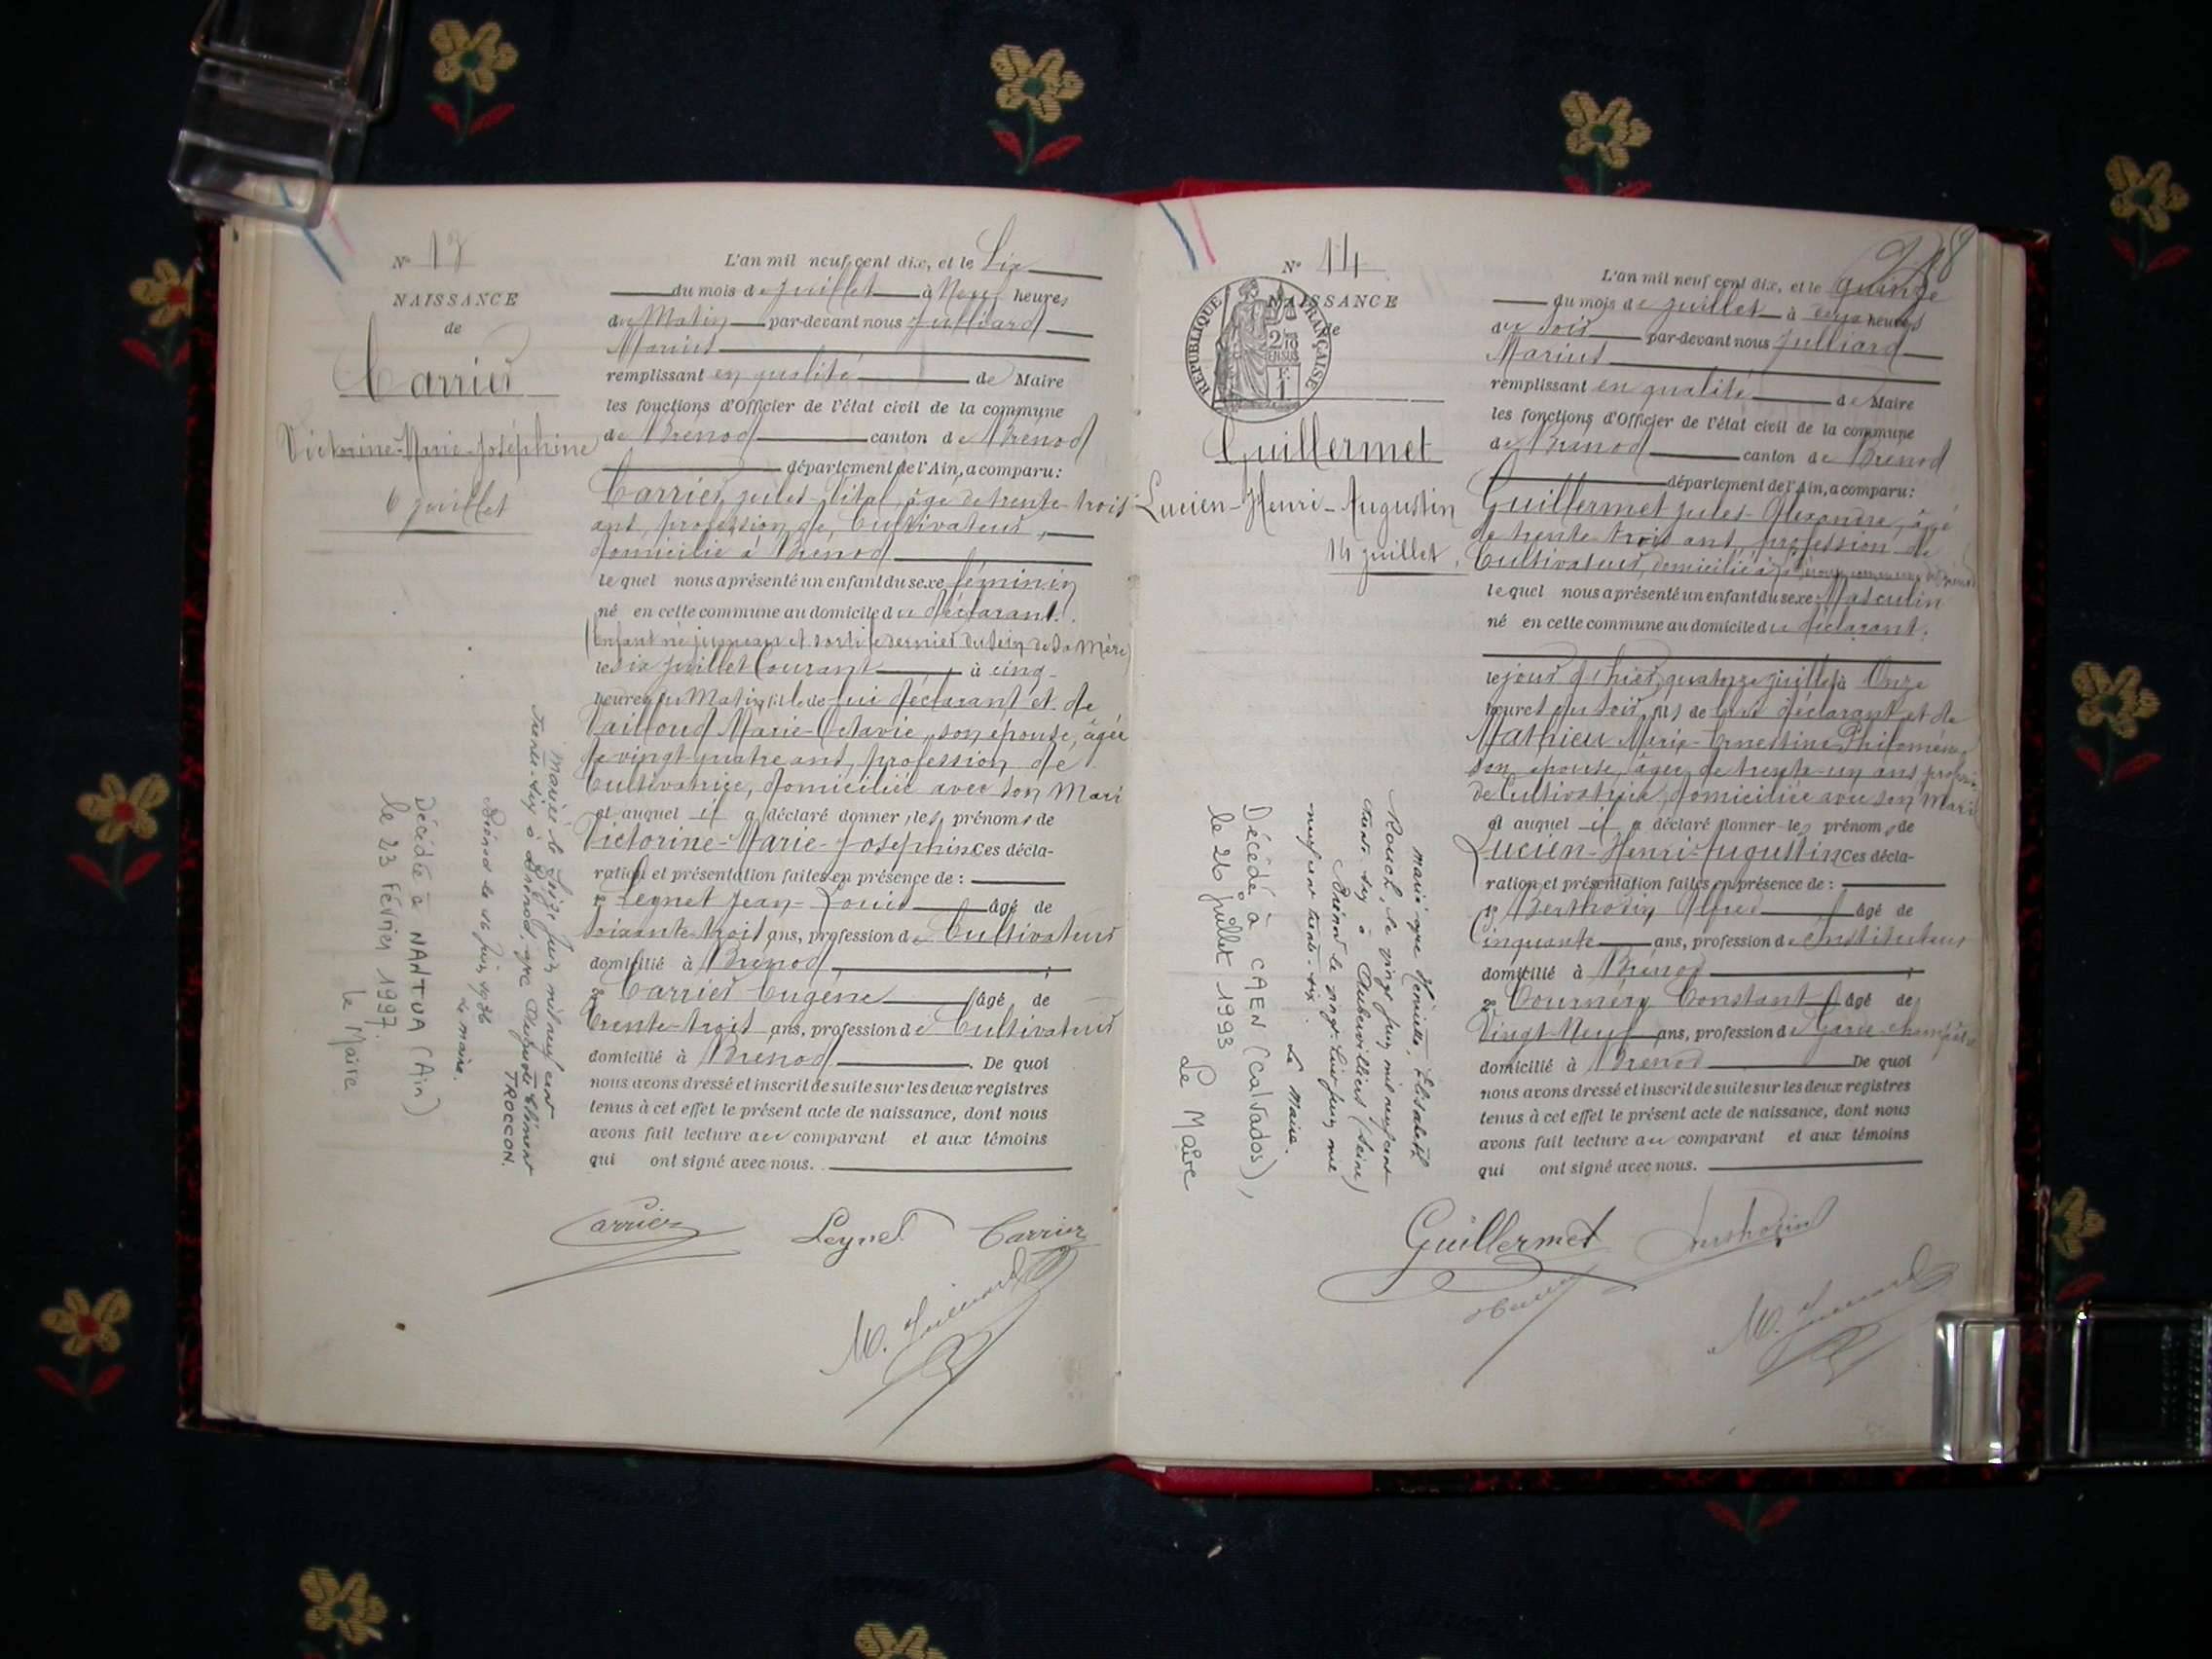 N° 13
NAISSANCE
de
Carrier
Victorine-Marie-Joséphine
6 juillet
L'an mil neuf cent dix, et le Six
du mois de juillet à Neuf heures
du Matin par-devant nous Julliard
Marius
remplissant en qualité de Maire
les fonctions d'Officier de l'état civil de la commune
de Brénod canton de Brénod
département de l'Ain, a comparu:
Carrier, jules-Vital, âgé de trente-trois
ans, profession de Cultivateur,
domicilié à Brénod
lequel nous a présenté un enfant du sexe féminin
né en cette commune au domicile du déclarant.
(Enfant né jumeau et sorti le dernier du sein de sa Mère)
le six juillet Courant à cinq
heures du Matin, fille de lui déclarant et de
Vailloud Marie-Octavie, son épouse, âgée
de vingt-quatre ans, profession de
Cultivatrice, domiciliée avec son Mari
et auquel il a déclaré donner les prénoms de
Victorine-Marie-Joséphine Ces décla-
ration et présentation faites en présence de :
1° Leynet Jean-Louis âgé de
Soixante-trois ans, profession de Cultivateur
domicilié à Brénod,
2° Carrier Eugène âgé de
Trente-trois ans, profession de Cultivateur
domicilié à Brénod. De quoi
nous avons dressé et inscrit de suite sur les deux registres
tenus à cet effet le présent acte de naissance, dont nous
avons fait lecture au comparant et aux témoins
qui ont signé avec nous.
Carrier Leynet Carrier
M. Julliard
Mariée le Seize juin mil neuf cent
trente-six à Brénod, avec Auguste Clément
TROCCON.
Brénod le 16 juin 1936
Le maire.
Décédée à NANTUA (Ain)
le 23 Février 1997.
le Maire
218
N° 14
NAISSANCE
de
RÉPUBLIQUE FRANÇAISE
2/10 EN SUS
F. 1
Guillermet
Lucien-Henri-Augustin
14 juillet.
L'an mil neuf cent dix, et le quinze
du mois de juillet à heures
du soir par-devant nous Julliard
Marius
remplissant en qualité de Maire
les fonctions d'Officier de l'état civil de la commune
de Brénod canton de Brénod
département de l'Ain, a comparu:
Guillermet jules-Alexandre, âgé
de trente-trois ans, profession de
Cultivateur, domicilié à commune de Brénod
lequel nous a présenté un enfant du sexe Masculin
né en cette commune au domicile du déclarant.
le jour d'hier, quatorze juillet à Onze
heures du soir, fils de lui déclarant et de
Mathieu Marie-Ernestine Philomène,
son épouse, âgée de trente-un ans profession
de Cultivatrice, domiciliée avec son Mari
et auquel il a déclaré donner les prénoms de
Lucien-Henri-Augustin Ces décla-
ration et présentation faites en présence de :
1° Berthozin Alfred âgé de
Cinquante ans, profession de Instituteur
domicilié à Brénod
2° Cournéry Constant âgé de
Vingt-Neuf ans, profession de Garde-champêtre
domicilié à Brénod De quoi
nous avons dressé et inscrit de suite sur les deux registres
tenus à cet effet le présent acte de naissance, dont nous
avons fait lecture au comparant et aux témoins
qui ont signé avec nous.
Guillermet
M. Julliard
Marié avec Henriette, Elisabeth
Rouch, le vingt juin mil neuf cent
trente-six à Aubervilliers (Seine)
Brénod le vingt-cinq juin mil
neuf cent trente-six.
Le Maire.
Décédé à CAEN (Calvados),
le 26 juillet 1993
Le Maire